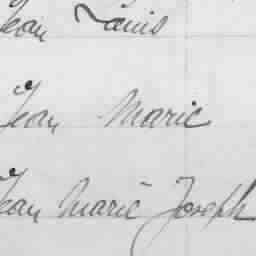 Jean Louis
Jean Marie
Jean Marie Joseph